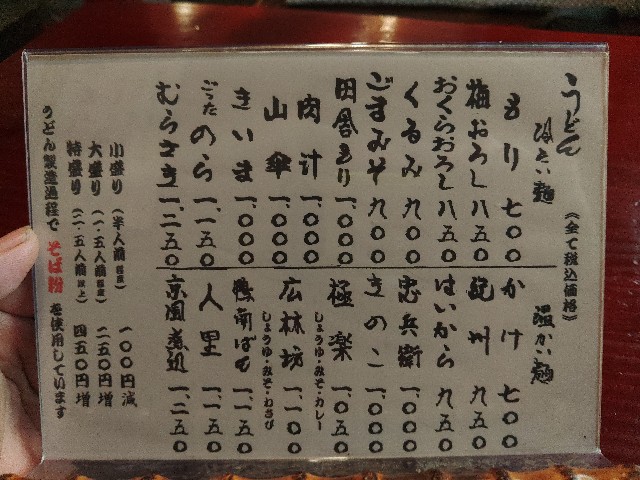 うどん
(全て税込価格)
冷たい麺
もり 七〇〇
梅おろし 八五〇
おくらおろし 八五〇
くるみ 九〇〇
ごまみそ 九〇〇
田舎もり 一、〇〇〇
肉汁 一、〇〇〇
山傘 一、〇〇〇
きいま 一、〇〇〇
ごった のら 一、一五〇
むらさき 一、二五〇
温かい麺
かけ 七〇〇
紀州 九五〇
はいから 九五〇
忠兵衛 一、〇〇〇
きのこ 一、〇〇〇
極楽 一、〇五〇
しょうゆ・みそ・カレー
広林坊 一、一〇〇
しょうゆ・みそ・わさび
鴨南ばん 一、一五〇
人里 一、一五〇
京風煮込 一、二五〇
小盛り (半人前程度) 一〇〇円減
大盛り (一・五人前程度) 二五〇円増
特盛り (二・五人前以上) 四五〇円増
うどん製造過程で そば粉 を使用しています